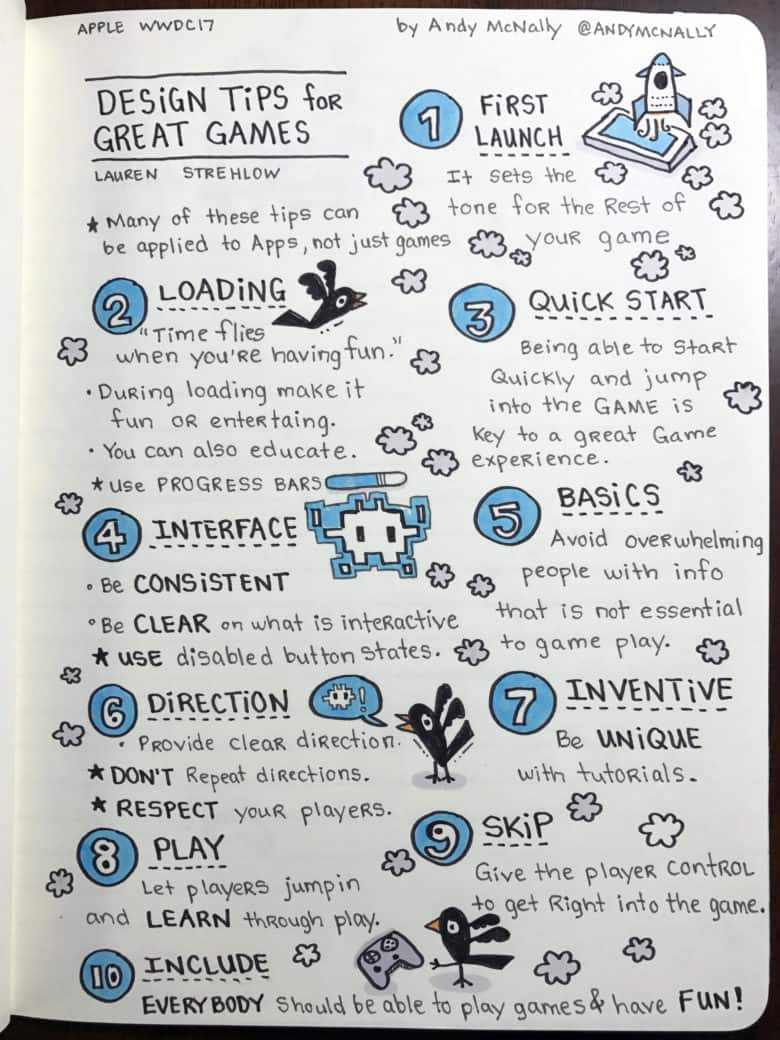 APPLE WWDC17
by Andy McNally @ANDYMCNALLY
DESIGN TIPS for
GREAT GAMES
LAUREN STREHLOW
★ Many of these tips can
be applied to Apps, not just games
1 FIRST
LAUNCH
It sets the
tone for the Rest of
your game
2 LOADING
"Time flies
when you're having fun."
• During loading make it
fun OR entertaing.
• You can also educate.
★ use PROGRESS BARS
3 QUICK START
Being able to start
Quickly and jump
into the GAME is
key to a great Game
experience.
4 INTERFACE
• Be CONSISTENT
• Be CLEAR on what is interactive
★ USE disabled button states.
5 BASICS
Avoid overwhelming
people with info
that is not essential
to game play.
6 DIRECTION
!
• Provide clear direction.
★ DON'T Repeat directions.
★ RESPECT your players.
7 INVENTIVE
Be UNIQUE
with tutorials.
8 PLAY
Let players jumpin
and LEARN through play.
9 SKIP
Give the player control
to get Right into the game.
10 INCLUDE
EVERYBODY should be able to play games & have FUN!